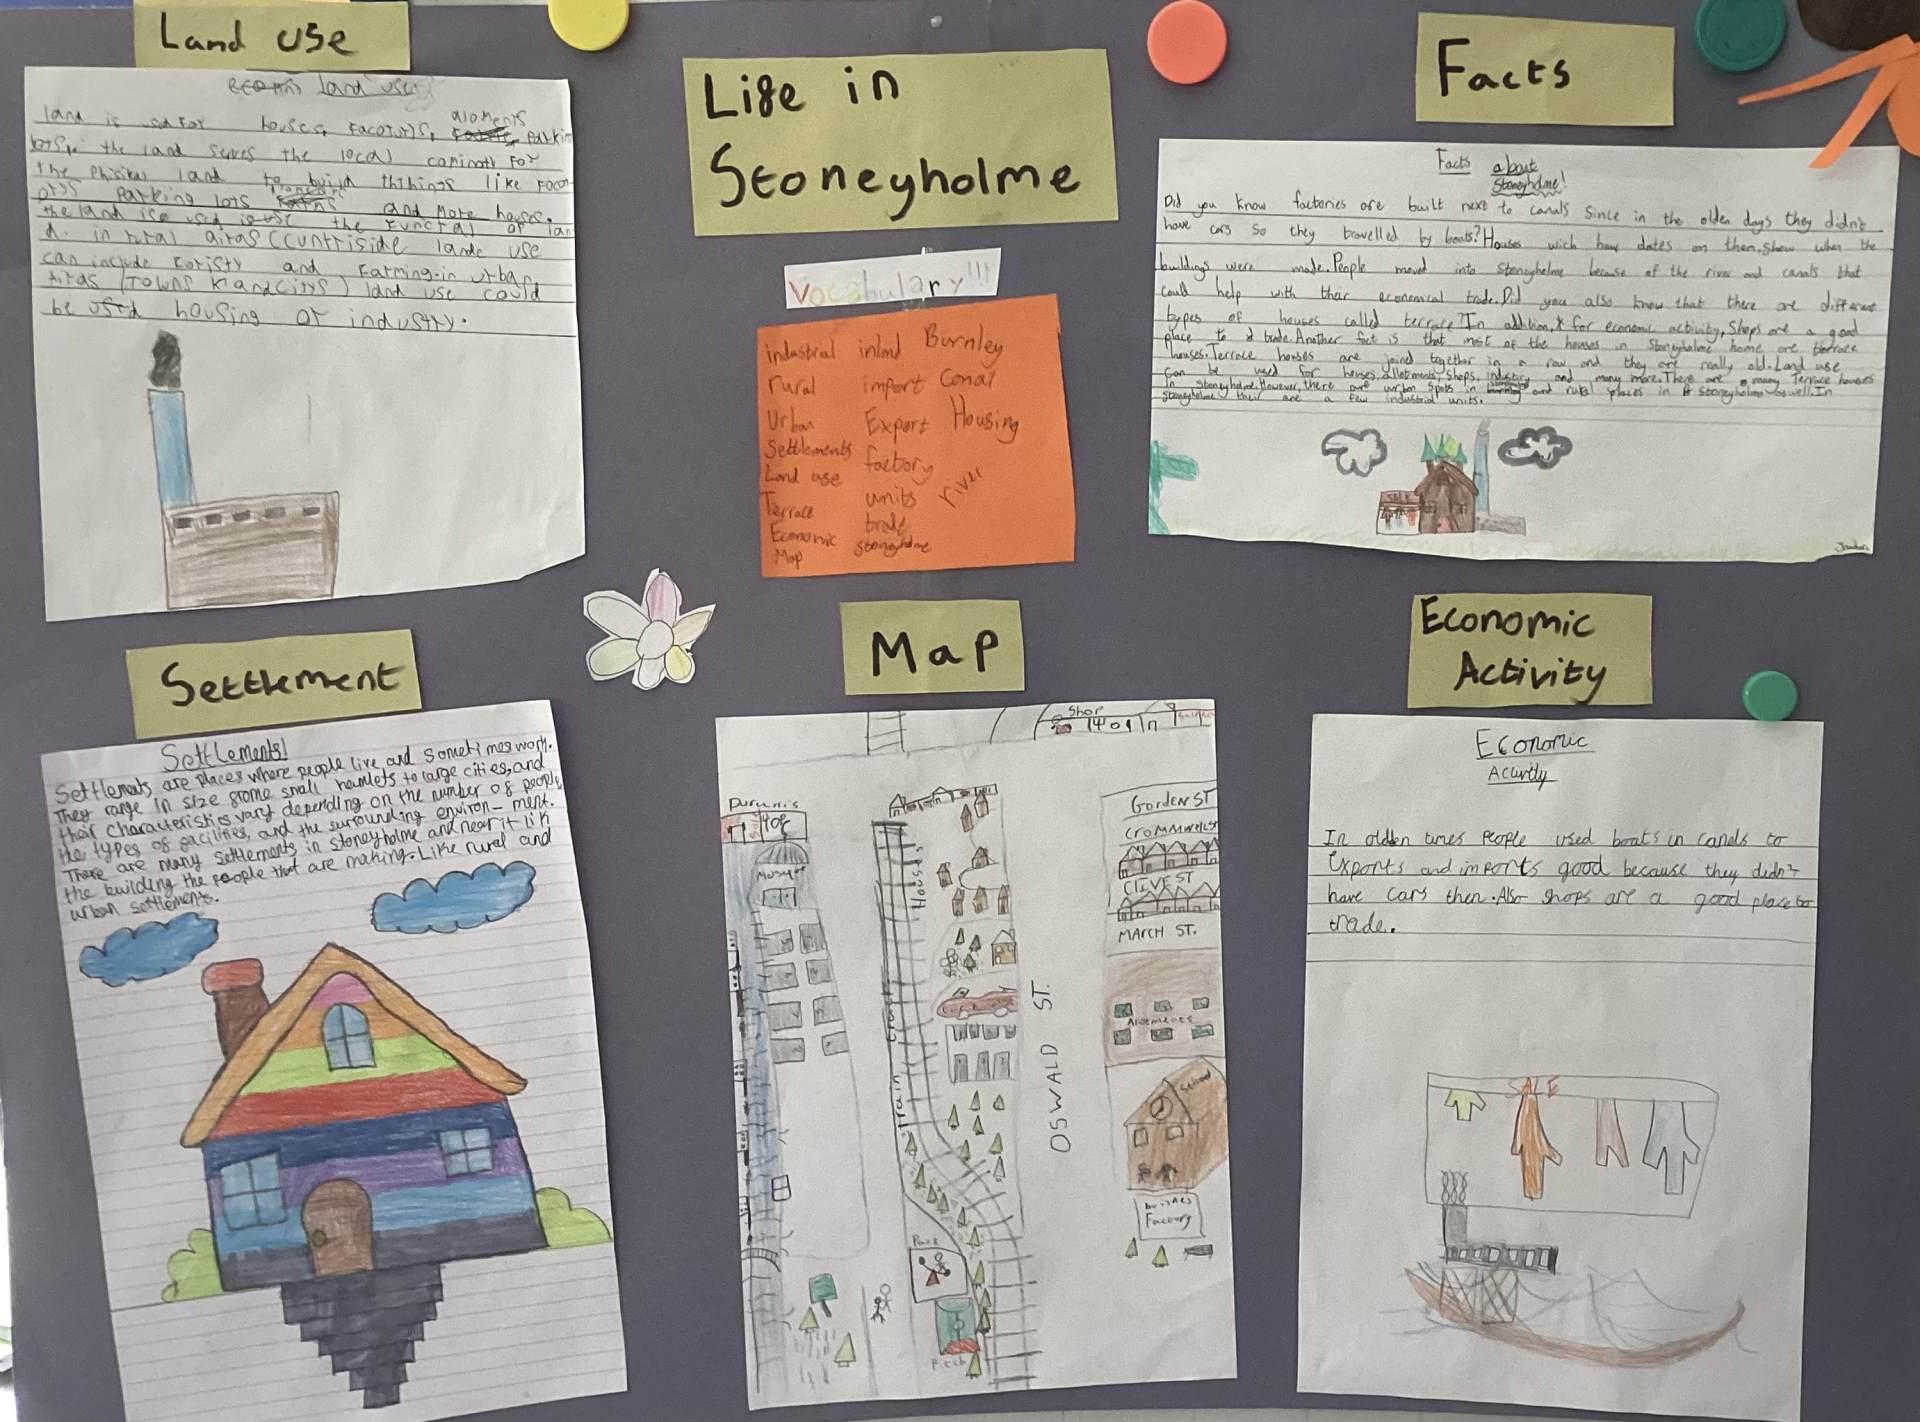 Land use
land use
land is usd for houses, Facoturys, aloments Parkin
lots, the land serves the local cominaty For
the Phisikel land to build ththings like Facor
orys Parking lots and More houses.
the land is used the Functral of lan
d. in rural airas (cuntriside lande use
can include Foristy and Farming.in urban
airas (Towns and citys) land use could
be used housing or industry.
Life in
Stoneyholme
Vocabulary!!!
industrial inland Burnley
rural import Canal
Urban Export Housing
Settlements factory
Land use units river
Terrace trade
Economic Stoneyholme
Map
Facts
Facts about
Stoneyholme!
Did you know factories are built next to canals since in the olden days they didn't
have cars so they travelled by boats? Houses wich have dates on them, show when the
buildings were made. People moved into Stoneyholme because of the river and canals that
could help with their economical trade. Did you also know that there are different
types of houses called terrace? In addition, for economic activity, Shops are a good
place to trade. Another fact is that most of the houses in Stoneyholme home are terrace
houses. Terrace houses are joined together in a row and they are really old. Land use
can be used for houses, allotments, shops, industry and many more. There are many Terrace houses
In stoneyholme. However, there are urban spots in and rural places in Stoneyholme aswell. In
stoneyholme their are a few industrial units.
SALE
Settlement
Settlements!
Settlements are places where people live and sometimes work.
They range in size frome small hamlets to large cities, and
their characteristics vary depending on the number of people,
the types of facilities, and the surrounding environ-ment.
There are many settlements in stoneyholme and near it lik
the building the people that are making. Like rural and
urban settlements.
Map
Shop
Mosque
Houses
Train track
OSWALD ST.
Gorden ST
CROMWELL ST
CLIVE ST
MARCH ST.
Alotments
School
Factory
Park
Pitch
Economic
Activity
Economic
Activity
In olden times People used boats in canals to
Exports and imports good because they didn't
have cars then. Also shops are a good place to
trade.
SALE